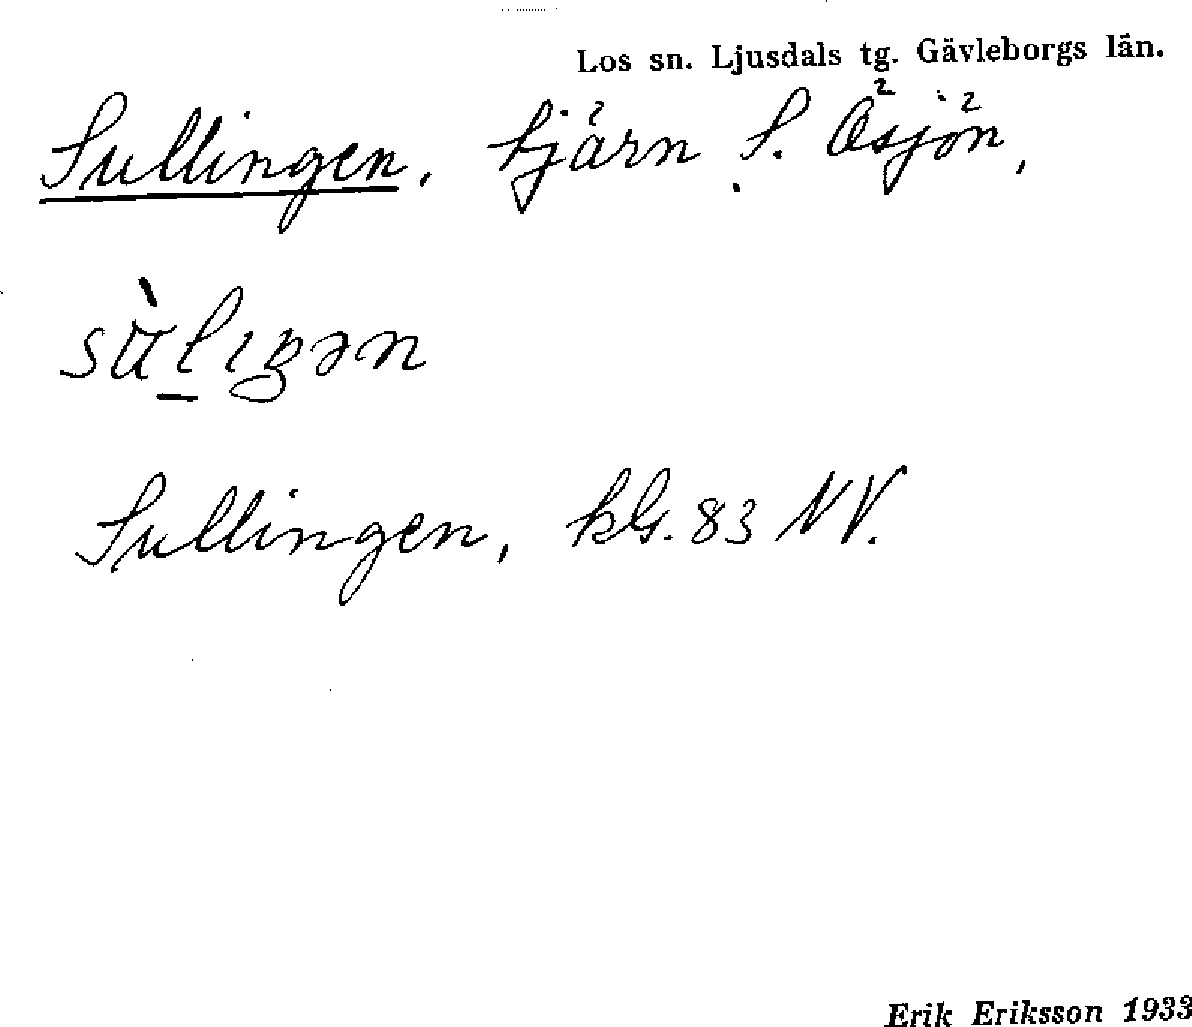 Los sn. Ljusdals tg. Gävleborgs län.
Sullingen, tjärn S. Ösjön,
Sullingen, kG. 83 NV.
Erik Eriksson 1933